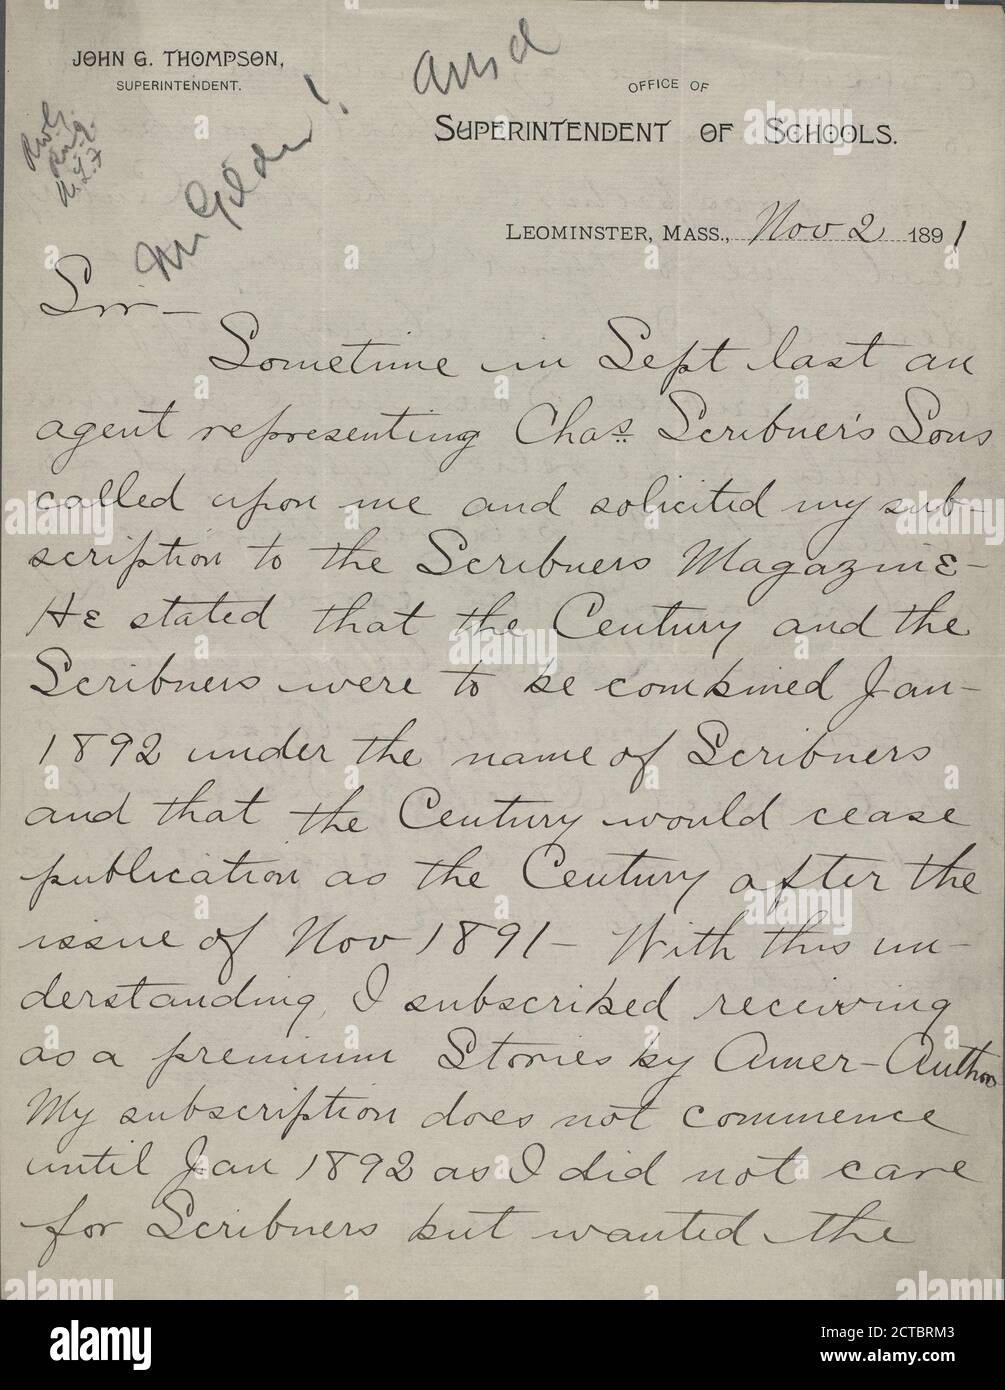 JOHN G. THOMPSON,
SUPERINTENDENT.
Mr Gilder!
Ansd
OFFICE OF
SUPERINTENDENT OF SCHOOLS.
LEOMINSTER, MASS., Nov 2 1891
Sir —
Sometime in Sept last an
agent representing Chas. Scribner's Sons
called upon me and solicited my sub-
scription to the Scribners Magazine —
He stated that the Century and the
Scribners were to be combined Jan —
1892 under the name of Scribners
and that the Century would cease
publication as the Century after the
issue of Nov 1891 — With this un-
derstanding, I subscribed receiving
as a premium Stories by Amer-Authors
My subscription does not commence
until Jan 1892 as I did not care
for Scribners but wanted the
alamy
Image ID: 2CTBRM3
www.alamy.com